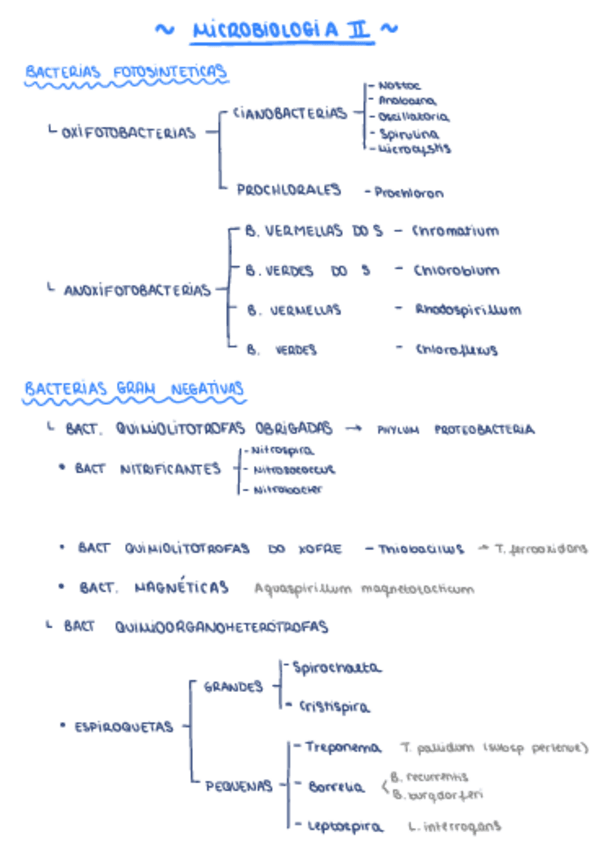 ~ MICROBIOLOGIA II ~
BACTERIAS FOTOSINTETICAS
- Nostoc
- Anabaena
CIANOBACTERIAS - Oscillatoria
└ OXIFOTOBACTERIAS - Spirulina
- Microcystis
PROCHLORALES - Prochloron
B. VERMELLAS DO S - Chromatium
B. VERDES DO S - Chlorobium
└ ANOXIFOTOBACTERIAS
B. VERMELLAS - Rhodospirillum
B. VERDES - Chloroflexus
BACTERIAS GRAM NEGATIVAS
└ BACT. QUIMIOLITOTROFAS OBRIGADAS → PHYLUM PROTEOBACTERIA
- Nitrospira
• BACT NITRIFICANTES - Nitrosococcus
- Nitrobacter
• BACT QUIMIOLITOTROFAS DO XOFRE - Thiobacillus → T. ferrooxidans
• BACT. MAGNÉTICAS Aquaspirillum magnetotacticum
└ BACT QUIMIOORGANOHETERÓTROFAS
- Spirochaeta
GRANDES
- Cristispira
• ESPIROQUETAS
- Treponema T. pallidum (subsp pertenue)
B. recurrentis
PEQUENAS - Borrelia
B. burgdorferi
- Leptospira L. interrogans